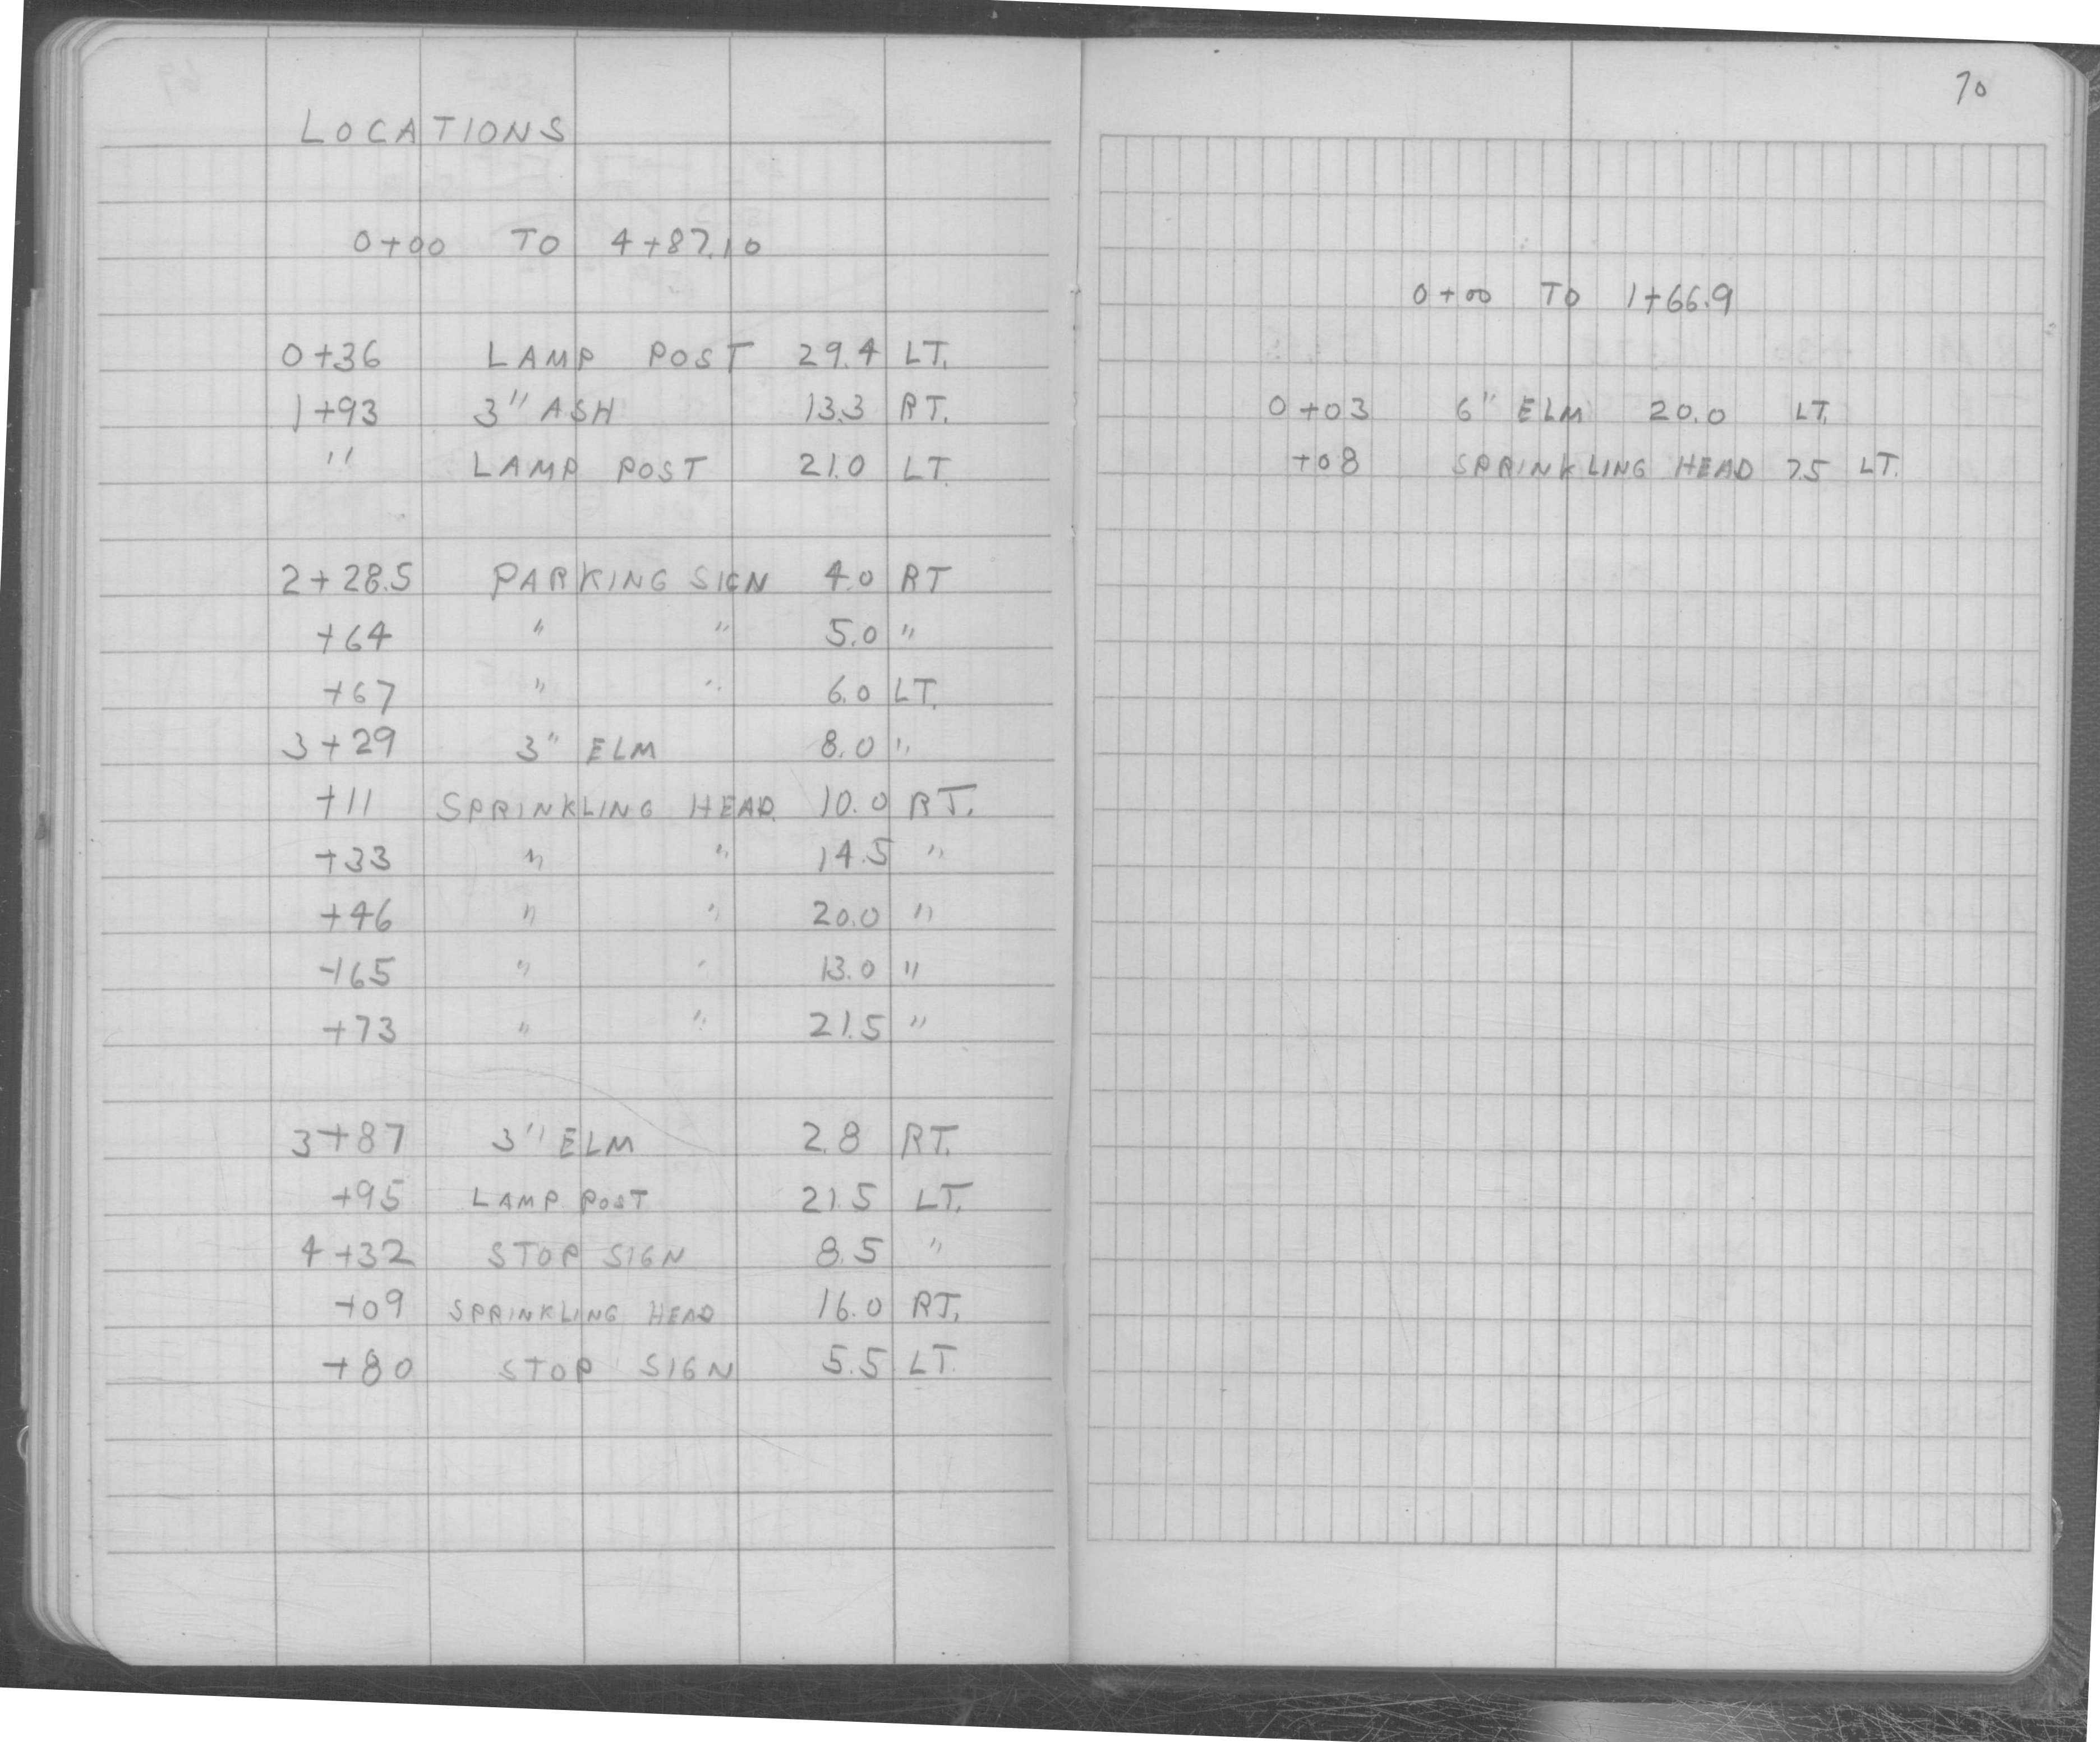 LOCATIONS
0+00 TO 4+87.10
0+36 LAMP POST 29.4 LT.
1+93 3" ASH 13.3 RT.
" LAMP POST 21.0 LT.
2+28.5 PARKING SIGN 4.0 RT
+64 " " 5.0 "
+67 " " 6.0 LT.
3+29 3" ELM 8.0 "
+11 SPRINKLING HEAD 10.0 RT.
+33 " " 14.5 "
+46 " " 20.0 "
+65 " " 13.0 "
+73 " " 21.5 "
3+87 3" ELM 2.8 RT.
+95 LAMP POST 21.5 LT.
4+32 STOP SIGN 8.5 "
+09 SPRINKLING HEAD 16.0 RT.
+80 STOP SIGN 5.5 LT.
70
0+00 TO 1+66.9
0+03 6" ELM 20.0 LT.
+08 SPRINKLING HEAD 7.5 LT.